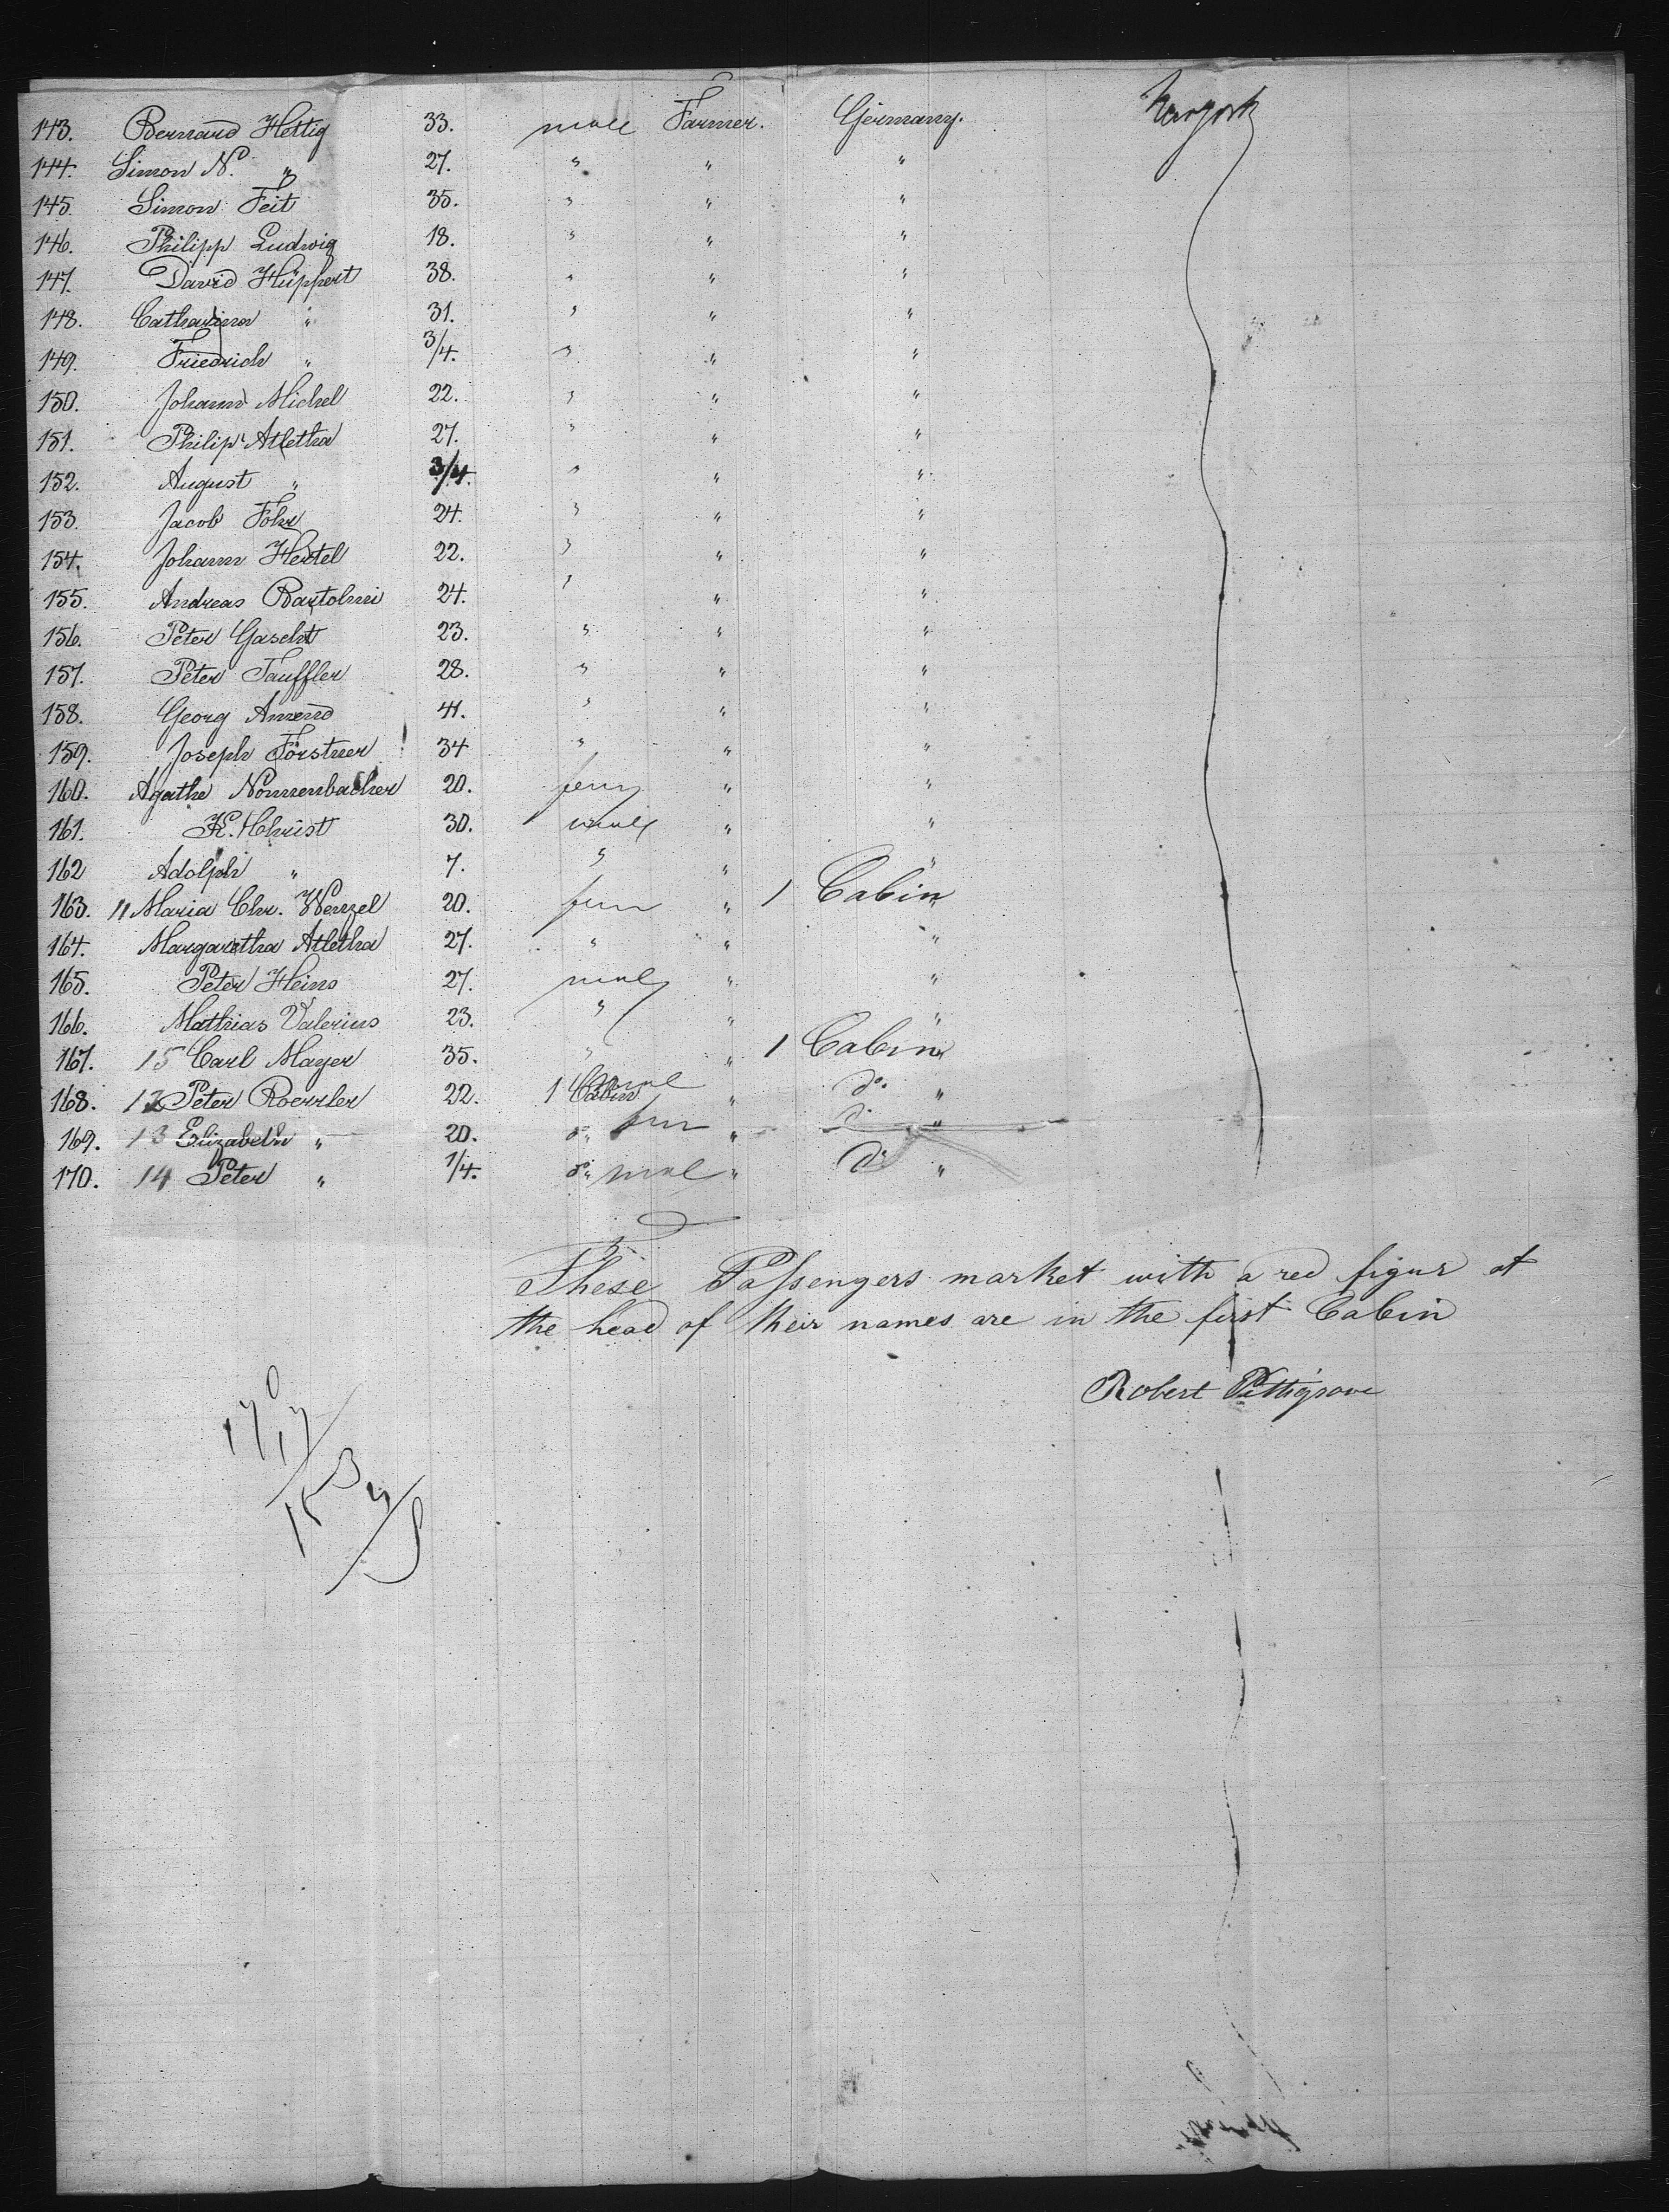 143. Bernard Hettig 33. male Farmer. Germany. Newyork
144. Simon N. " 27. " " "
145. Simon Feit 35. " " "
146. Philipp Ludwig 18. " " "
147. David Hüppert 38. " " "
148. Catharina " 31. " " "
149. Friedrich " 3/4. " " "
150. Johann Michel 22. " " "
151. Philip Atletha 27. " " "
152. August " 3/4. " " "
153. Jacob Fohr 24. " " "
154. Johann Hertel 22. " " "
155. Andreas Bartolmei 24. " " "
156. Peter Gascht 23. " " "
157. Peter Tauffler 28. " " "
158. Georg Amend 41. " " "
159. Joseph Förstner 34 " " "
160. Agathe Nonnenbacher 20. fem " "
161. K. Christ 30. male " "
162 Adolph " 7. " " "
163. 11 Maria Chr. Wenzel 20. fem " 1 Cabin "
164. Margaretha Atletha 27. " " "
165. Peter Heins 27. male " "
166. Mathias Valerius 23. " " "
167. 15 Carl Mayer 35. " " 1 Cabin "
168. 12 Peter Roessler 22. 1 Cabin male " do. "
169. 13 Elizabeth " 20. do. fem " do. "
170. 14 Peter " 1/4. do. male " do "
These Passengers market with a red figur at
the head of their names are in the first Cabin
Robert Pettigrove
170
17
153